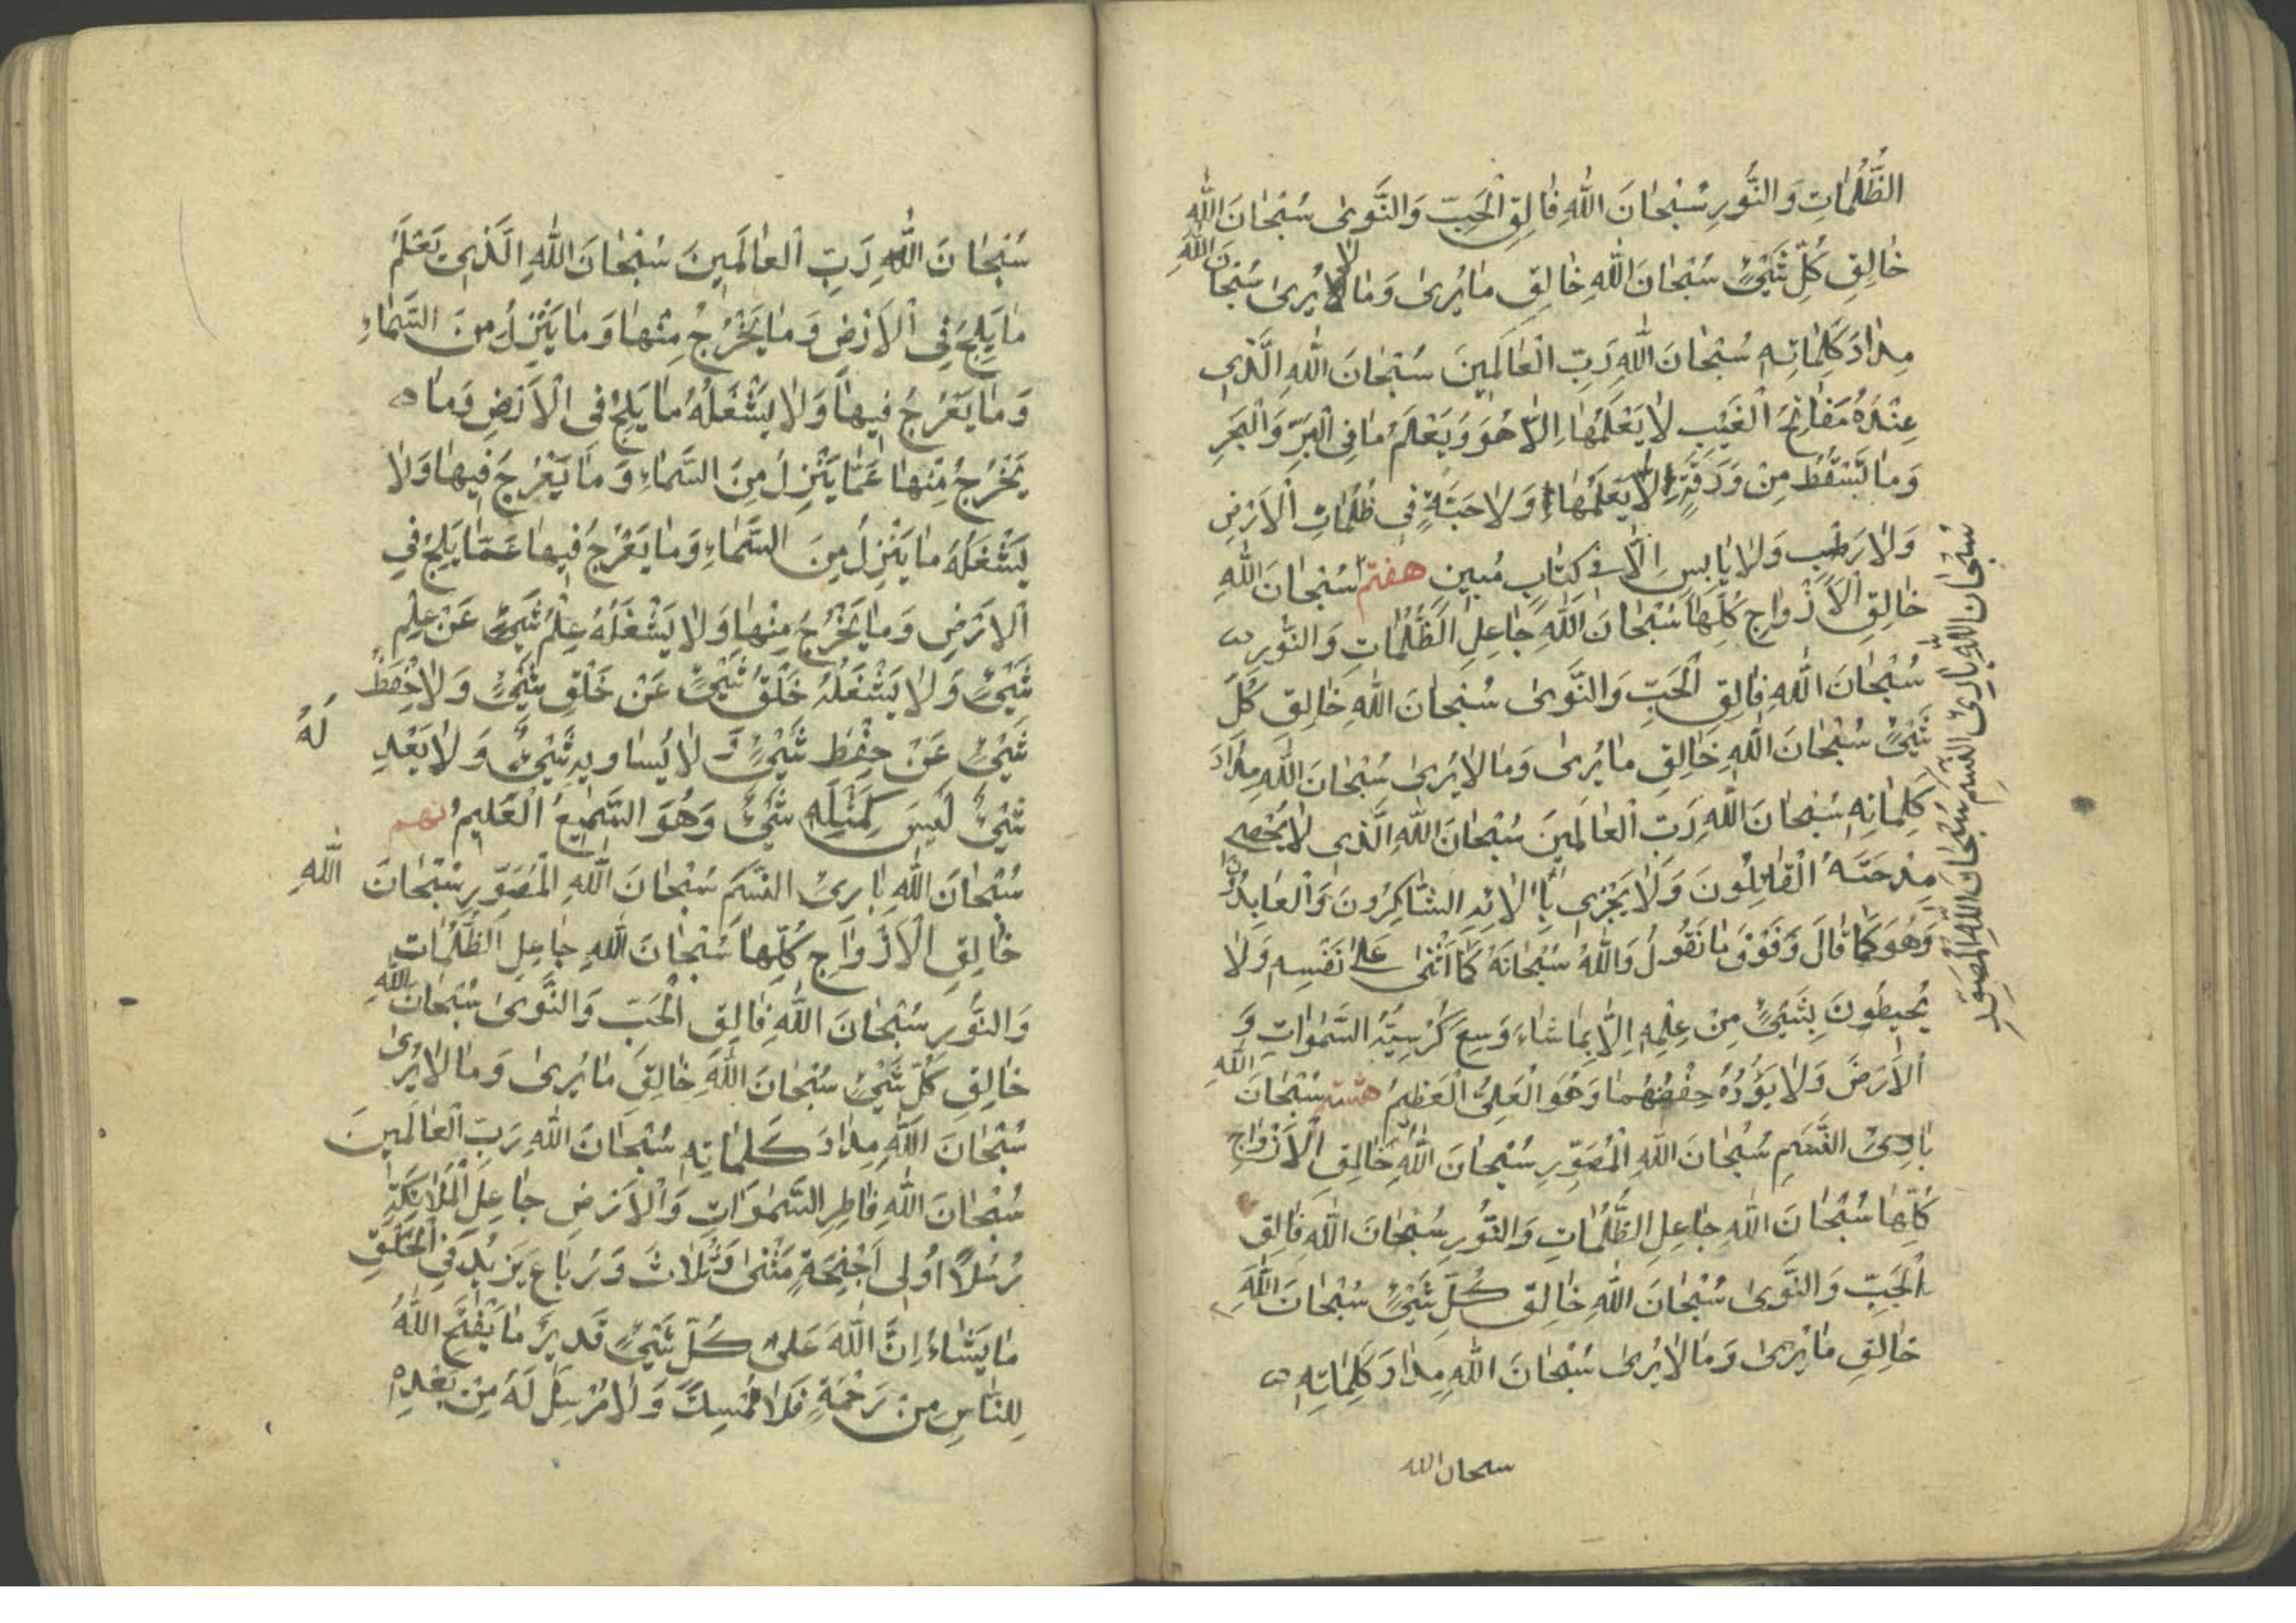 الظُّلُمٰاتِ وَالنُّورِ سُبْحٰانَ اللّٰهِ فٰالِقِ الْحَبِّ وَالنَّوىٰ سُبْحٰانَ اللّٰهِ
خٰالِقِ كُلِّ شَيْئٍ سُبْحٰانَ اللّٰهِ خٰالِقِ مٰا يُرىٰ وَمٰا لاٰ يُرىٰ سُبْحٰانَ اللّٰهِ
مِدٰادَ كَلِمٰاتِهِ سُبْحٰانَ اللّٰهِ رَبِّ الْعٰالَمِينَ سُبْحٰانَ اللّٰهِ الَّذي
عِنْدَهُ مَفٰاتِحُ الْغَيْبِ لاٰ يَعْلَمُهٰا اِلاّٰ هُوَ وَيَعْلَمُ مٰا فِي الْبَرِّ وَالْبَحْرِ
وَمٰا تَسْقُطُ مِنْ وَرَقَةٍ اِلاّٰ يَعْلَمُهٰا وَلاٰ حَبَّةٍ في ظُلُمٰاتِ الْاَرْضِ
وَلاٰ رَطْبٍ وَلاٰ يٰابِسٍ اِلاّٰ في كِتٰابٍ مُبينٍ هفتم سُبْحٰانَ اللّٰهِ
سُبْحٰانَ اللّٰهِ بٰارِئِ النَّسَمِ سُبْحٰانَ اللّٰهِ الْمُصَوِّرِ
خٰالِقِ الْاَزْوٰاجِ كُلِّهٰا سُبْحٰانَ اللّٰهِ جٰاعِلِ الظُّلُمٰاتِ وَالنُّورِ
سُبْحٰانَ اللّٰهِ فٰالِقِ الْحَبِّ وَالنَّوىٰ سُبْحٰانَ اللّٰهِ خٰالِقِ كُلِّ
شَيْئٍ سُبْحٰانَ اللّٰهِ خٰالِقِ مٰا يُرىٰ وَمٰا لاٰ يُرىٰ سُبْحٰانَ اللّٰهِ مِدٰادَ
كَلِمٰاتِهِ سُبْحٰانَ اللّٰهِ رَبِّ الْعٰالَمينَ سُبْحٰانَ اللّٰهِ الَّذي لاٰ يُحْصي
مِدْحَتَهُ الْقٰائِلُونَ وَلاٰ يَجْزي بِاٰلاٰئِهِ الشّٰاكِرُونَ وَالْعٰابِدُونَ
وَهُوَ كَمٰا قٰالَ وَفَوْقَ مٰا نَقُولُ وَاللّٰهُ سُبْحٰانَهُ كَمٰا اَثْنىٰ عَلىٰ نَفْسِهِ وَلاٰ
يُحيطُونَ بِشَيْئٍ مِنْ عِلْمِهِ اِلاّٰ بِمٰا شٰاءَ وَسِعَ كُرْسِيُّهُ السَّمٰوٰاتِ وَ
الْاَرْضَ وَلاٰ يَؤُدُهُ حِفْظُهُمٰا وَهُوَ الْعَلِيُّ الْعَظيمُ هشتم سُبْحٰانَ اللّٰهِ
بٰارِئِ النَّسَمِ سُبْحٰانَ اللّٰهِ الْمُصَوِّرِ سُبْحٰانَ اللّٰهِ خٰالِقِ الْاَزْوٰاجِ
كُلِّهٰا سُبْحٰانَ اللّٰهِ جٰاعِلِ الظُّلُمٰاتِ وَالنُّورِ سُبْحٰانَ اللّٰهِ فٰالِقِ
الْحَبِّ وَالنَّوىٰ سُبْحٰانَ اللّٰهِ خٰالِقِ كُلِّ شَيْئٍ سُبْحٰانَ اللّٰهِ
خٰالِقِ مٰا يُرىٰ وَمٰا لاٰ يُرىٰ سُبْحٰانَ اللّٰهِ مِدٰادَ كَلِمٰاتِهِ
سبحان الله
سُبْحٰانَ اللّٰهِ رَبِّ الْعٰالَمينَ سُبْحٰانَ اللّٰهِ الَّذي يَعْلَمُ
مٰا يَلِجُ فِي الْاَرْضِ وَمٰا يَخْرُجُ مِنْهٰا وَمٰا يَنْزِلُ مِنَ السَّمٰاءِ
وَمٰا يَعْرُجُ فيهٰا وَلاٰ يَشْغَلُهُ مٰا يَلِجُ فِي الْاَرْضِ وَمٰا
يَخْرُجُ مِنْهٰا عَمّٰا يَنْزِلُ مِنَ السَّمٰاءِ وَمٰا يَعْرُجُ فيهٰا وَلاٰ
يَشْغَلُهُ مٰا يَنْزِلُ مِنَ السَّمٰاءِ وَمٰا يَعْرُجُ فيهٰا عَمّٰا يَلِجُ فِي
الْاَرْضِ وَمٰا يَخْرُجُ مِنْهٰا وَلاٰ يَشْغَلُهُ عِلْمُ شَيْئٍ عَنْ عِلْمِ
شَيْئٍ وَلاٰ يَشْغَلُهُ خَلْقُ شَيْئٍ عَنْ خَلْقِ شَيْئٍ وَلاٰ حِفْظُ
شَيْئٍ عَنْ حِفْظِ شَيْئٍ وَ لاٰ يُسٰاويهِ شَيْئٌ وَلاٰ يَعْدِلُهُ
شَيْئٌ لَيْسَ كَمِثْلِهِ شَيْئٌ وَهُوَ السَّميعُ الْعَليمُ نهم
سُبْحٰانَ اللّٰهِ بٰارِئِ النَّسَمِ سُبْحٰانَ اللّٰهِ الْمُصَوِّرِ سُبْحٰانَ اللّٰهِ
خٰالِقِ الْاَزْوٰاجِ كُلِّهٰا سُبْحٰانَ اللّٰهِ جٰاعِلِ الظُّلُمٰاتِ
وَالنُّورِ سُبْحٰانَ اللّٰهِ فٰالِقِ الْحَبِّ وَالنَّوىٰ سُبْحٰانَ اللّٰهِ
خٰالِقِ كُلِّ شَيْئٍ سُبْحٰانَ اللّٰهِ خٰالِقِ مٰا يُرىٰ وَمٰا لاٰ يُرىٰ
سُبْحٰانَ اللّٰهِ مِدٰادَ كَلِمٰاتِهِ سُبْحٰانَ اللّٰهِ رَبِّ الْعٰالَمينَ
سُبْحٰانَ اللّٰهِ فٰاطِرِ السَّمٰوٰاتِ وَالْاَرْضِ جٰاعِلِ الْمَلاٰئِكَةِ
رُسُلاً اُولي اَجْنِحَةٍ مَثْنىٰ وَثُلاٰثَ وَرُبٰاعَ يَزيدُ فِي الْخَلْقِ
مٰا يَشٰاءُ اِنَّ اللّٰهَ عَلىٰ كُلِّ شَيْئٍ قَديرٌ مٰا يَفْتَحِ اللّٰهُ
لِلنّٰاسِ مِنْ رَحْمَةٍ فَلاٰ مُمْسِكَ وَلاٰ مُرْسِلَ لَهُ مِنْ بَعْدِهِ